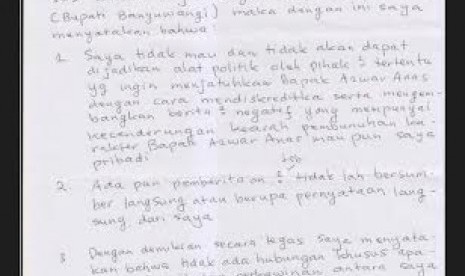 (Bupati Banyuwangi) maka dengan ini saya
menyatakan bahwa:
1. Saya tidak mau dan tidak akan dapat
dijadikan alat politik oleh pihak² tertentu
yg ingin menjatuhkan Bapak Azwar Anas
dengan cara mendiskreditka serta mengem-
bangkan berita² negatif yang mempunyai
kecenderungan kearah pembunuhan ka-
rakter Bapak Azwar Anas mau pun saya
pribadi
2. Ada pun pemberitaan² tsb tidak lah bersum-
ber langsung atau berupa pernyataan lang-
sung dari saya
3 Dengan demikian secara tegas saya menyata-
kan bahwa tidak ada hubungan khusus apa-
antara saya